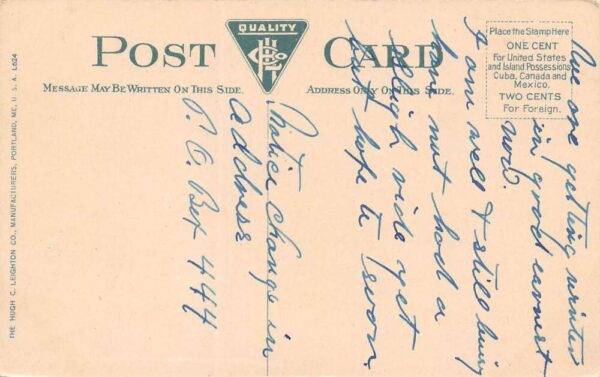 POST CARD
QUALITY
MESSAGE MAY BE WRITTEN ON THIS SIDE.
ADDRESS ONLY ON THIS SIDE.
Place the Stamp Here
ONE CENT
For United States
and Island Possessions
Cuba, Canada and
Mexico.
TWO CENTS
For Foreign.
THE HUGH C. LEIGHTON CO., MANUFACTURERS, PORTLAND, ME., U. S. A. L624
are getting winter
in good earnest
now.
I am well & still living
have not had a
sleigh ride yet
but hope to soon.
Notice change in
address
P. O. Box 444